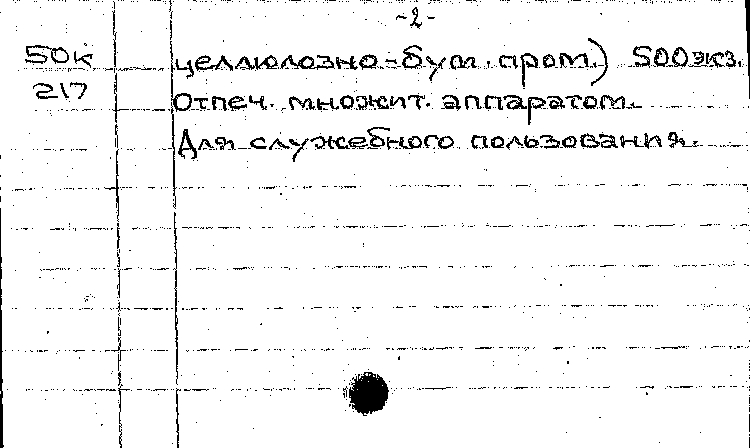 -2-
50к целлюлозно-бум. пром.) 500 экз.
217 Отпеч. множит. аппаратом.
Для служебного пользования.